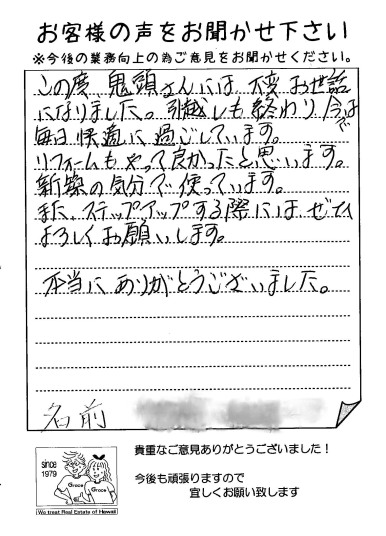 お客様の声をお聞かせ下さい
※今後の業務向上の為ご意見をお聞かせください。
この度、鬼頭さんには大変お世話
になりました。引越しも終わり今では
毎日快適に過ごしています。
リフォームもやって良かったと思います。
新築の気分で使っています。
また、ステップアップする際にはぜひ
よろしくお願いします。
本当にありがとうございました。
名前
貴重なご意見ありがとうございました！
今後も頑張りますので
宜しくお願い致します
since
1979
Grace
Grace
We treat Real Estate of Hawaii